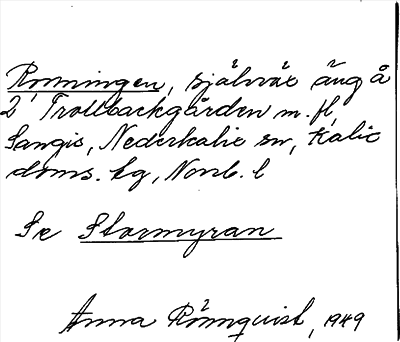 Ronningen, självväx äng å
2, Trollbackgården m. fl,
Sangis, Nederkalix sn, Kalix
doms. tg, Norrb. l
Se Stormyran
Anna Rönnquist, 1949